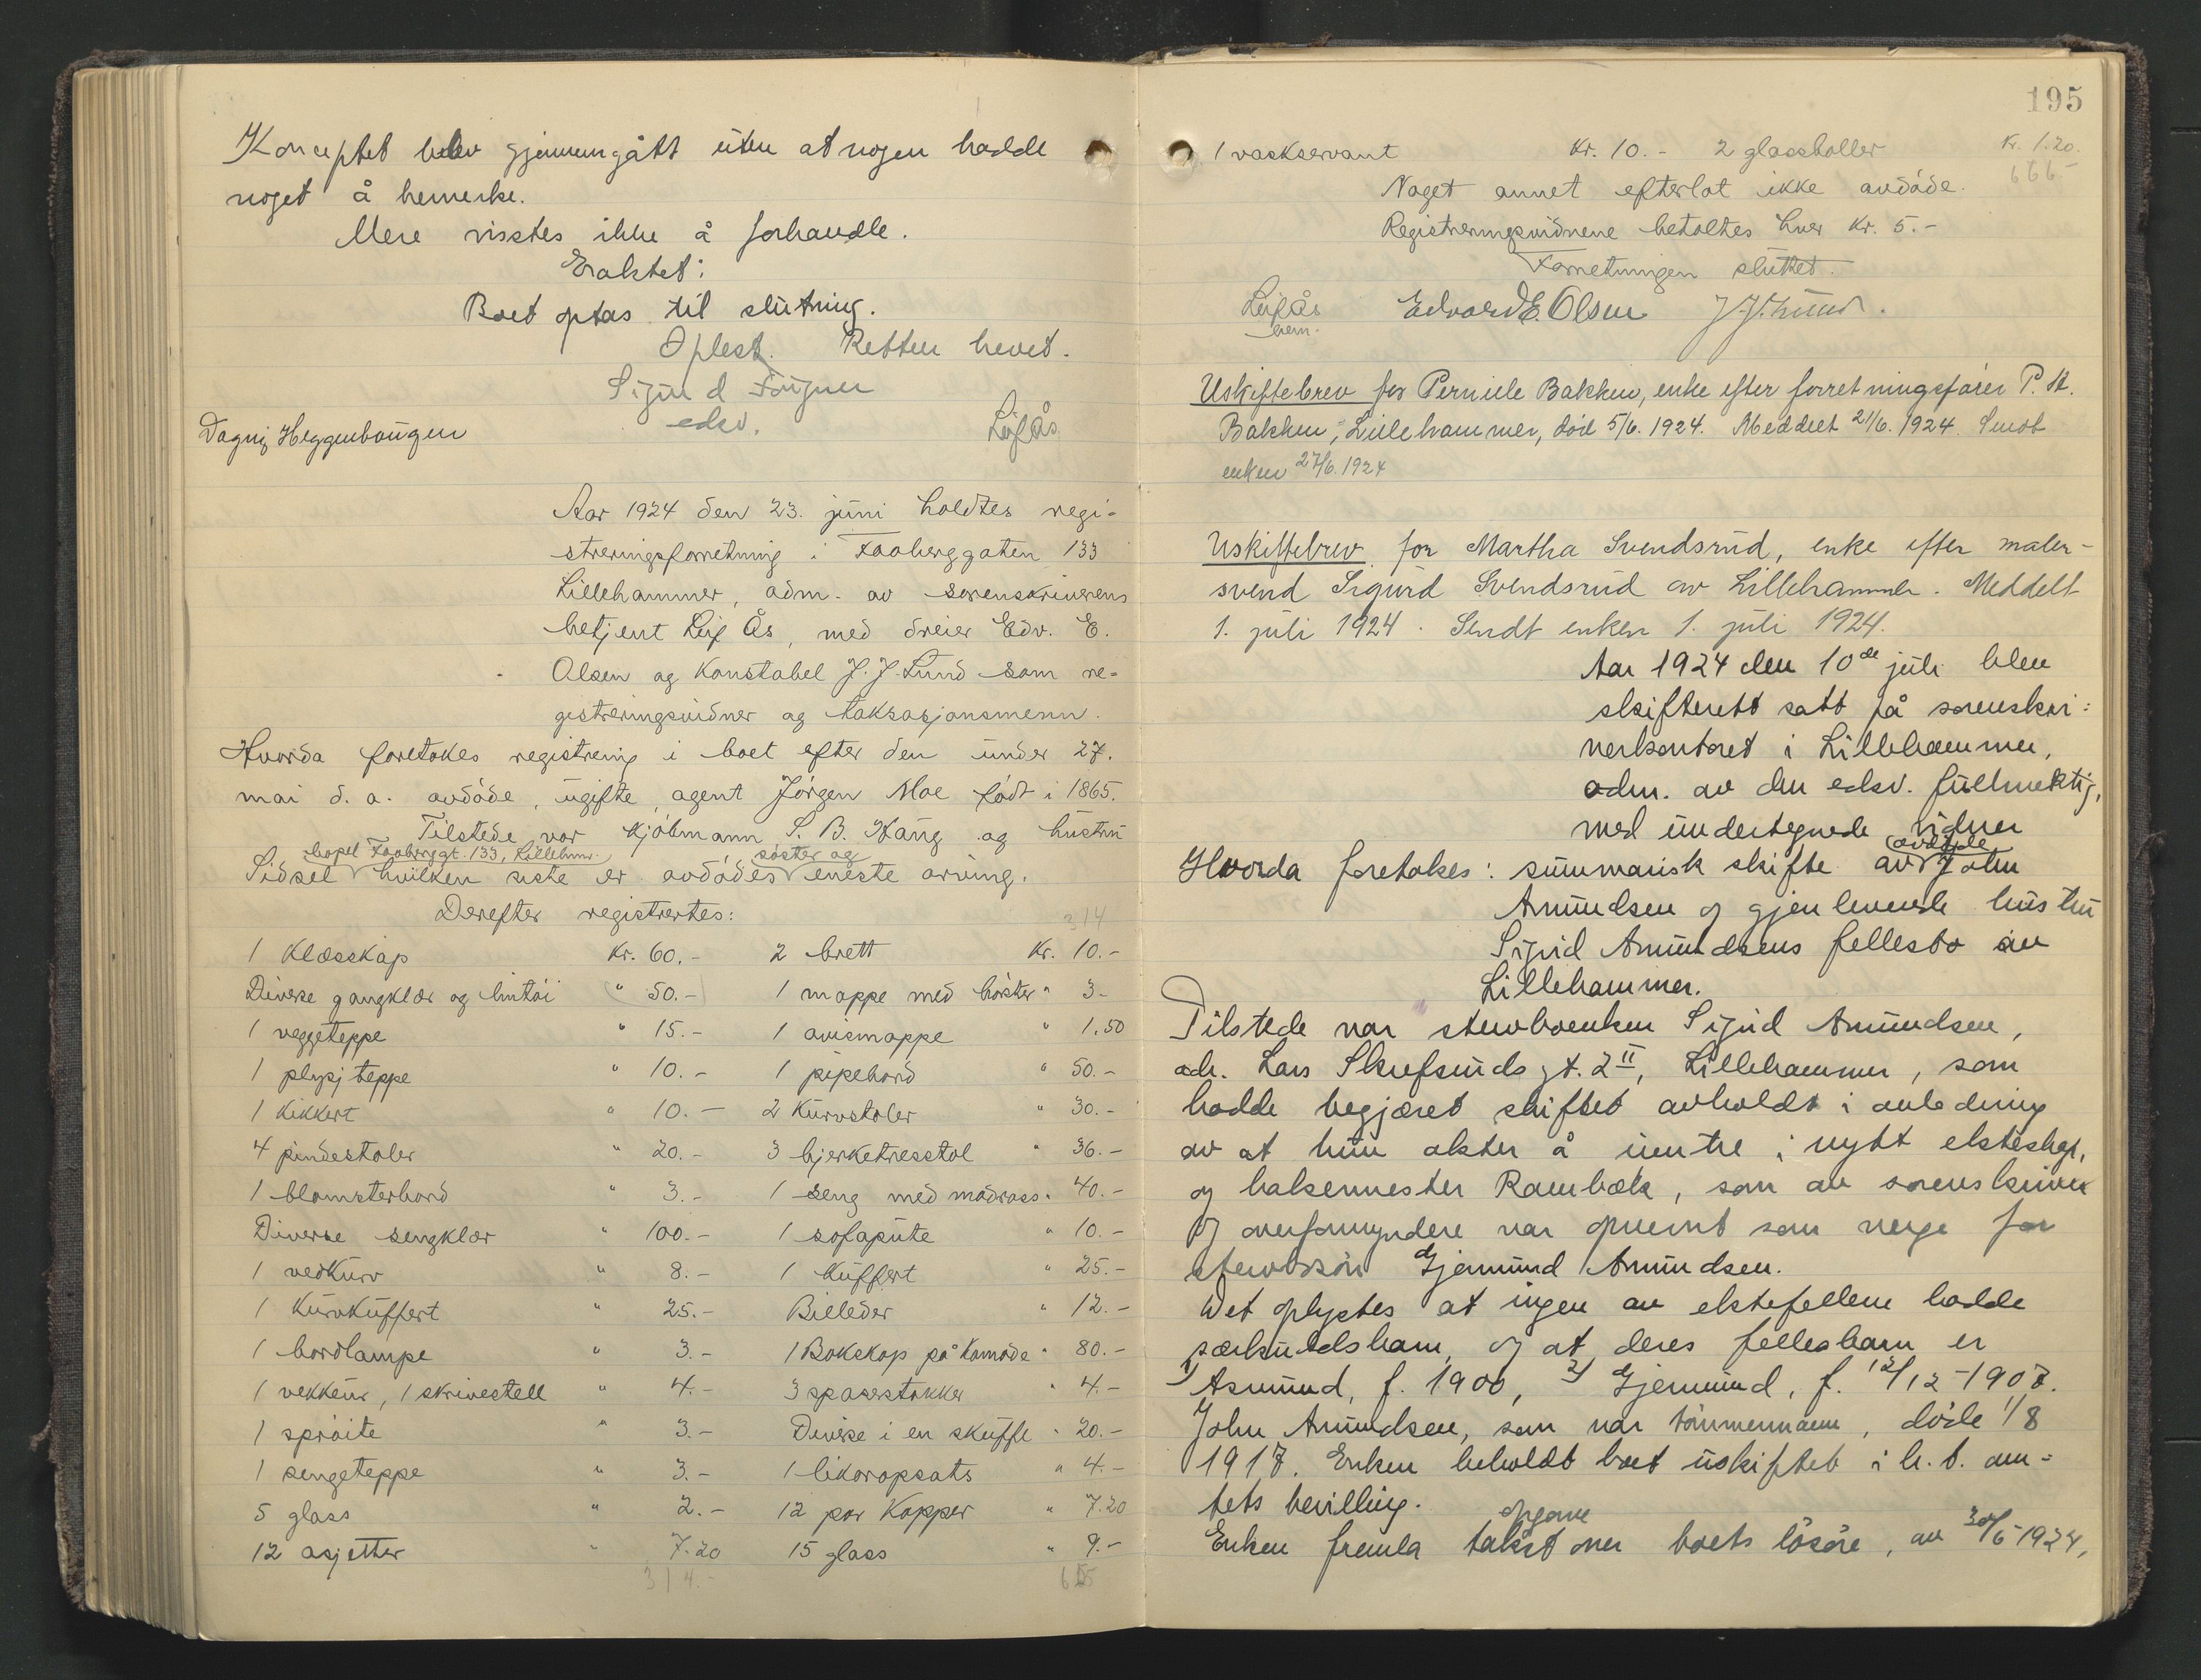 Konceptet blev gjennemgått uten at nogen hadde
noget å bemerke.
Mere visstes ikke å forhandle.
Eraktet:
Boet optas til slutning.
Oplest. Retten hevet.
Sigurd
edsv.
Leif Ås
Dagny Heggenhougen
Aar 1924 den 23. juni holdtes regi-
streringsforretning i Faaberggaten 133
Lillehammer, adm. av sorenskriverens
betjent Leif Ås, med dreier Edv. E.
Olsen og konstabel J. J. Lund som re-
gistreringsvidner og taksasjonsmenn.
Hvorda foretokes registrering i boet efter den under 27.
mai d. a. avdøde, ugifte, agent Jörgen Moe født i 1865.
Tilstede var kjøbmann S. B. Haug og hustru
bopel Faabergt. 133, Lillehmr. søster og
Sidsel hvilken siste er avdødes eneste arving.
Derefter registrertes:
314
1 klæsskap kr. 60.- 2 brett kr. 10.-
Diverse gangklær og lintøi " 50.- 1 mappe med børster " 3-
1 veggeteppe " 15.- 1 avismappe " 1.50
1 plysj teppe " 10.- 1 pipebord " 50.-
1 kikkert " 10.- 2 kurvstoler " 30.-
4 pindestoler " 20.- 3 bjerketresstol " 36.-
1 blomsterbord " 3.- 1 seng med madrass " 40.-
Diverse sengklær " 100.- 1 sofapute " 10.-
1 vedkurv " 8.- 1 kuffert " 25.-
1 kurvkuffert " 25.- Billeder " 12.-
1 bordlampe " 3.- 1 Bokskap på komode " 80.-
1 vekkeur, 1 skrivestell " 4.- 3 spaserstokker " 4.-
1 sprøite " 3.- Diverse i en skuffe " 20.-
1 sengeteppe " 3.- 1 likøropsats " 4.-
5 glass " 2.- 12 par kopper " 7.20
12 asjetter " 7.20 15 glass " 9.-
314.-
195
1 vaskservant kr. 10.- 2 glassboller kr. 1.20.
666.-
Noget annet efterlot ikke avdøde.
Registreringsvidnene betaltes hver kr. 5.-
Forretningen sluttet.
Leif Ås Edvard E. Olsen J. J. Lund.
Uskiftebrev for Pernille Bakken, enke efter forretningsfører P. H.
Bakken, Lillehammer, död 5/6. 1924. Meddelt 21/6. 1924. Sendt
enken 27/6. 1924
Uskiftebrev for Martha Svendsrud, enke efter maler-
svend Sigurd Svendsrud av Lillehammer. Meddelt
1. juli 1924. Sendt enken 1. juli 1924.
Aar 1924 den 10de juli blev
skifterett satt på sorenskri:
verkontoret i Lillehammer,
adm. av den edsv. fullmektig,
med undertegnede vidner
Hvorda foretokes: summarisk skifte av avdøde John
Amundsen og gjenlevende hustru
Sigrid Amundsens fellesbo av
Lillehammer.
Tilstede var stervboenken Sigrid Amundsen,
adr. Lars Skrefsruds gt. 2 II, Lillehammer, som
hadde begjæret skiftet avholdt i anledning
av at hun akter å inntre i nytt ekteskap,
og halsermester Rambæk, som av sorenskriver
og overformyndere var opnevnt som verge for
stervbosön Gjermund Amundsen.
Det oplystes at ingen av ektefellene hadde
særkuldsbarn, og at deres fellesbarn er
1/ Asmund, f. 1900, 2/ Gjermund, f. 12/12-1907.
John Amundsen, som var tömmermann, döde 1/8
1917. Enken beholdt boet uskiftet i h. t. am-
tets bevilling.
opgave
Enken fremla takst over boets lösöre, av 30/6 1924,